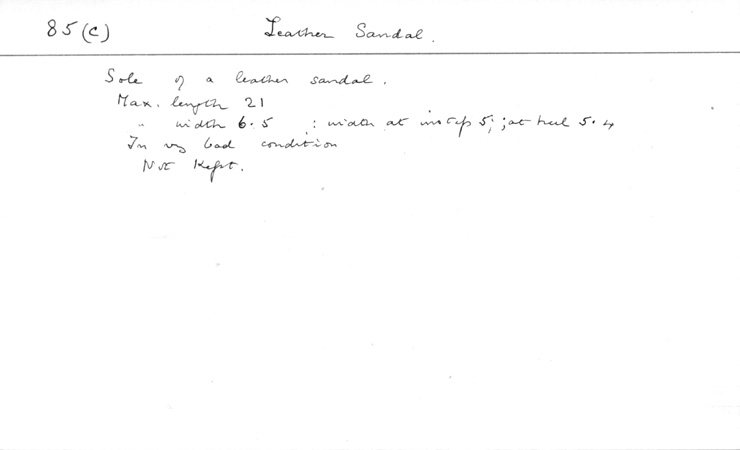 85(c) Leather Sandal.
Sole of a leather sandal.
Max. length 21
" width 6.5 : width at instep 5; ; at heel 5.4
In vy bad condition
Not Kept.